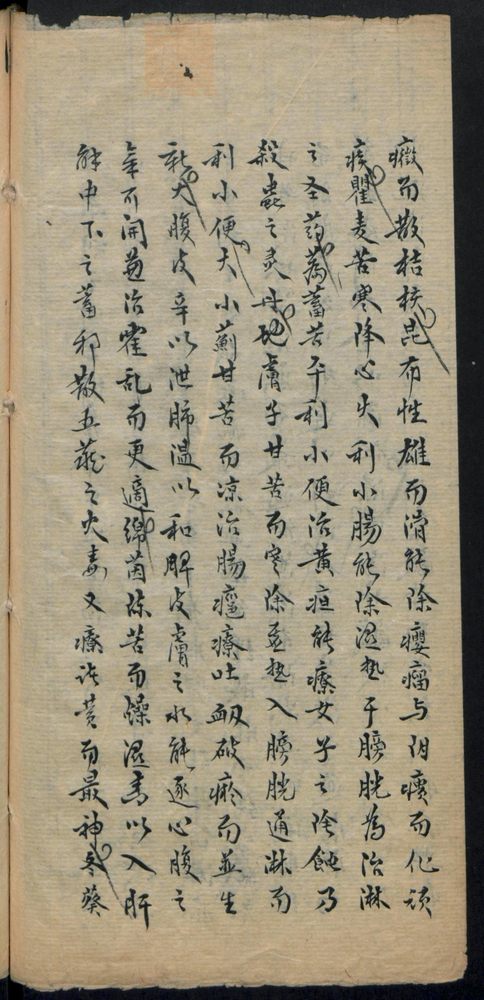 癥而散桔核昆布性雄而滑能除癭瘤与阴㿗而化頑
痰瞿麦苦寒降心火利小腸能除湿热于膀胱為治淋
之圣药萹蓄苦平利小便治黄疸能療女子之陰蝕乃
殺蟲之灵丹地膚子甘苦而寒除血热入膀胱通淋而
利小便大小薊甘苦而凉治腸癰療吐衂破瘀而並生
新大腹皮辛以泄肺温以和脾皮膚之水能逐心腹之
氣可開萹治霍乱而更適綿茵蔯苦而燥湿香以入肝
脾中下之蓄邪散五蔵之火毒又療諸黄而最神冬葵